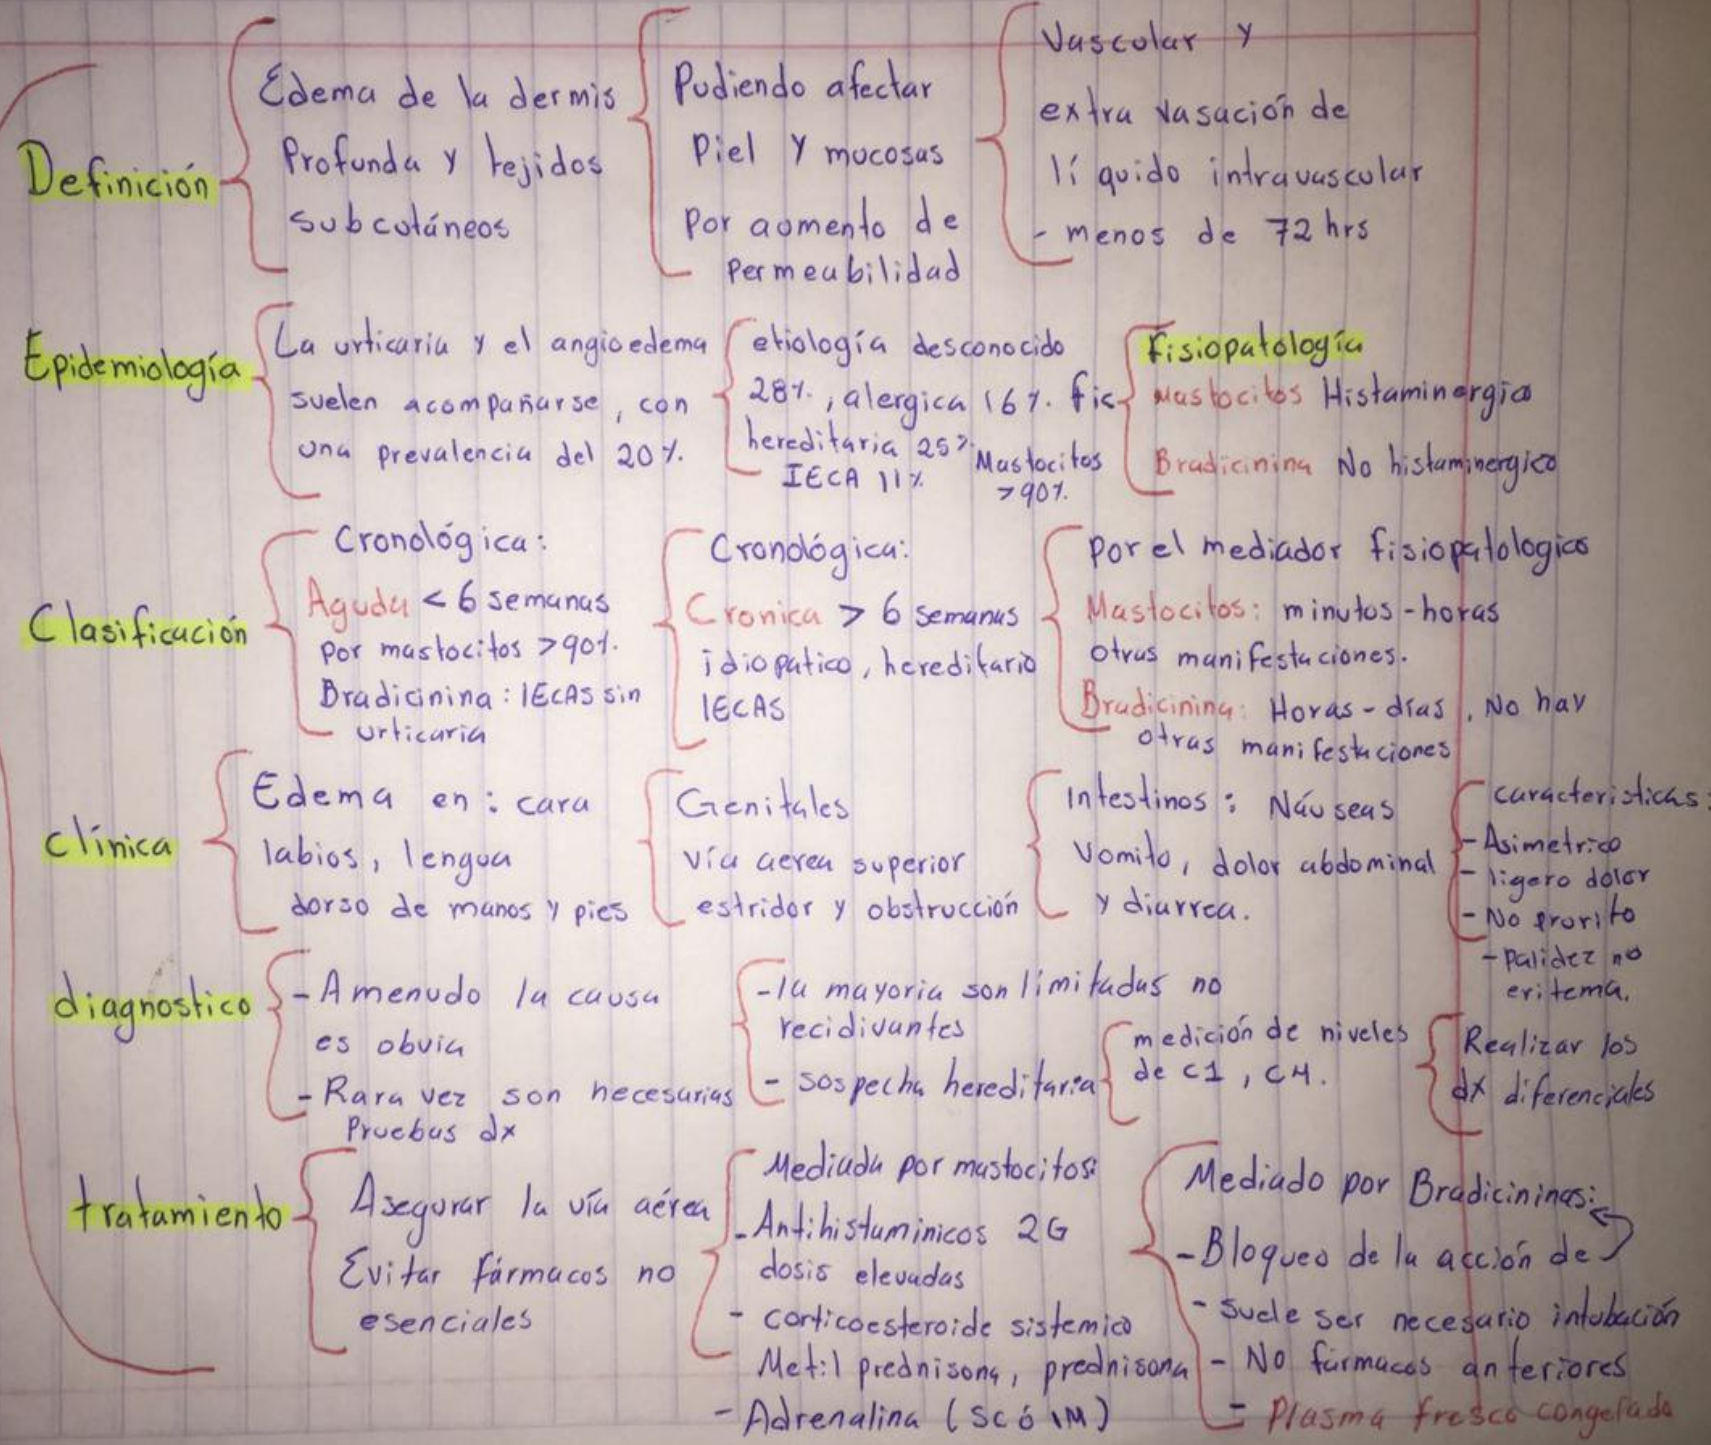 Definición
Edema de la dermis
Profunda y tejidos
subcutáneos
Pudiendo afectar
Piel y mucosas
por aumento de
permeabilidad
Vascular y
extra vasación de
líquido intravascular
- menos de 72 hrs
Epidemiología
La urticaria y el angioedema
suelen acompañarse, con
una prevalencia del 20%.
etiología desconocido
28%, alergica 16%. fic
hereditaria 25%
IECA 11%
Mastocitos
>90%.
Fisiopatología
Mastocitos Histaminergia
Bradicinina No histaminergico
Clasificación
Cronológica:
Aguda < 6 semanas
por mastocitos >90%.
Bradicinina: IECAS sin
urticaria
Cronológica:
Cronica > 6 semanas
idiopatico, hereditario
IECAS
por el mediador fisiopatologico
Mastocitos: minutos-horas
otras manifestaciones.
Bradicinina: Horas-días, No hay
otras manifestaciones
clínica
Edema en: cara
labios, lengua
dorso de manos y pies
Genitales
vía aerea superior
estridor y obstrucción
Intestinos: Náuseas
Vomito, dolor abdominal
y diarrea.
caracteristicas:
- Asimetrico
- ligero dolor
- No prorito
- palidez no
eritema.
diagnostico
- A menudo la causa
es obvia
- Rara vez son necesarias
Pruebas dx
- la mayoria son limitadas no
recidivantes
- sospecha hereditaria
medición de niveles
de C1, C4.
Realizar los
dx diferenciales
tratamiento
Asegurar la vía aérea
Evitar fármacos no
esenciales
Mediada por mastocitos:
- Antihistaminicos 2G
dosis elevadas
- corticoesteroide sistemico
Metil prednisona, prednisona
- Adrenalina (SC ó IM)
Mediado por Bradicininas:
- Bloqueo de la acción de
- suele ser necesario intubación
- No fármacos anteriores
- Plasma fresco congelado